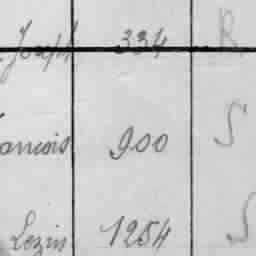 Joseph 334 R
ancois 900 S
Lezin 1254 S